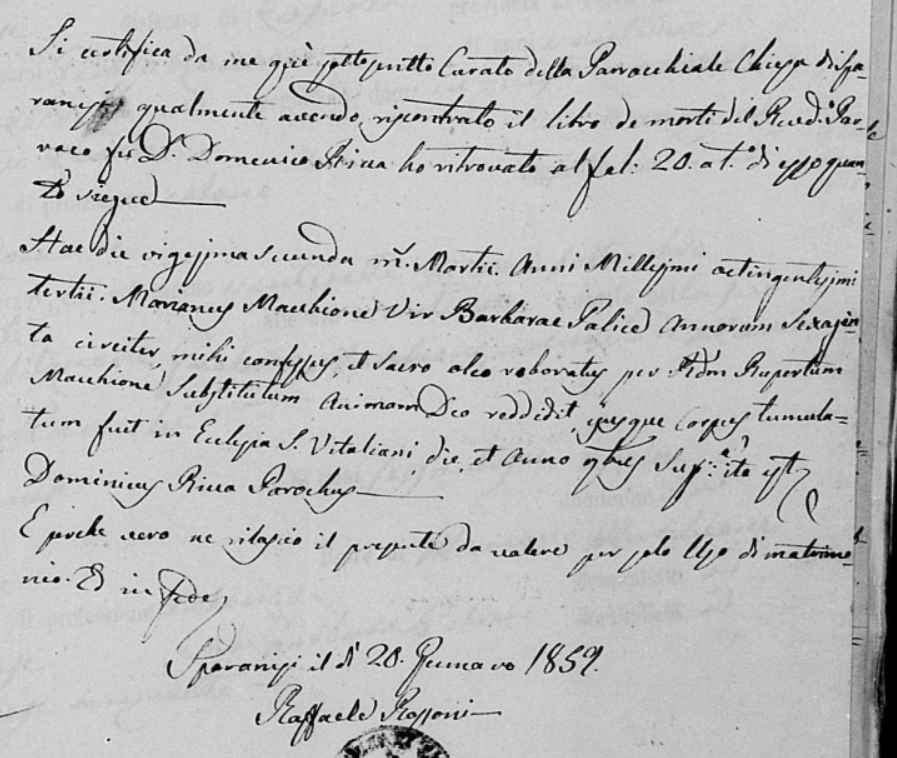 Si certifica da me quì sottoscritto Curato della Parrocchiale Chiesa di Spa=
ranisi qualmente avendo riscontrato il libro de morti del Rev.do Par=
roco fu D. Domenico Riua ho ritrovato al fol: 20. a t.o di esso quan=
to siegue
Hac die vigesima secunda m. Martii. Anni Millesimi octingentesimi
tertii. Marianus Macchione Vir Barbarae Palice Annorum sexagin=
ta circiter, mihi confessus, et sacro oleo roboratus per Rdm Rupertum
Macchione Substitutum Animam Deo reddidit, ejusque Corpus tumula=
tum fuit in Eclesia S. Vitaliani, die, et Anno qbus Sup.a ita est
Dominicus Riua Parochus
E perche vero ne rilascio il presente da valere per solo Uso di matrimo=
nio. Ed in fede
Sparanisi il dì 20. Gennaro 1859.
Raffaele